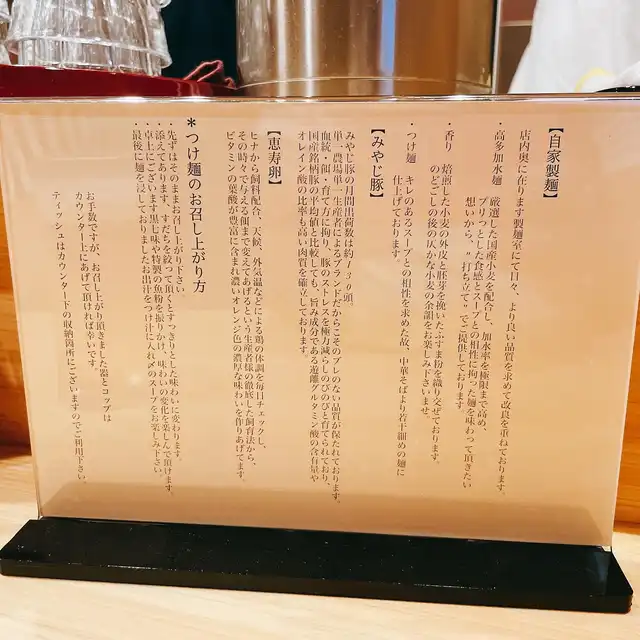 【自家製麺】
店内奥に在ります製麺室にて日々、より良い品質を求めて改良を重ねております。
・高多加水麺　厳選した国産小麦を配合し、加水率を極限まで高め、
プリっとした食感とスープとの相性に拘った麺を味わって頂きたい
想いから、"打ち立て"でご提供しております。
・香り　焙煎した小麦の外皮と胚芽を挽いたふすま粉を織り交ぜております。
のどごしの後の仄かな小麦の余韻をお楽しみ下さいませ。
・つけ麺　キレのあるスープとの相性を求めた故、中華そばより若干細めの麺に
仕上げております。
【みやじ豚】
みやじ豚の月間出荷数は約130頭。
単一農場単一生産者によるブランドだからこそのブレのない品質が保たれております。
血統・餌・育て方に拘り、豚のストレスを極力減らしのびのびと育てられており、
国産銘柄豚の平均値と比較しても、旨み成分である遊離グルタミン酸の含有量や
オレイン酸の比率も高い肉質を確立しております。
【恵寿卵】
ヒナから飼料配合、天候、外気温などによる鶏の体調を毎日チェックし、
その時々で与える餌まで変えてあげるという生産者様の徹底した飼育法から、
ビタミンの葉酸が豊富に含まれ濃いオレンジ色の濃厚な味わいを作りあげてます。
＊つけ麺のお召し上がり方
・先ずはそのままお召し上がり下さい。
・添えてあります、すだちを絞って頂くとすっきりとした味わいに変わります。
・卓上にございます黒七味や特製の魚粉を振りかけ、味わいの変化を楽しんで頂けます。
・最後に麺を浸しておりましたお出汁をつけ汁に入れ〆のスープをお楽しみ下さい。
お手数ですが、お召し上がり頂きました器とコップは
カウンター上にあげて頂ければ幸いです。
ティッシュはカウンター下の収納箇所にございますのでご利用下さい。